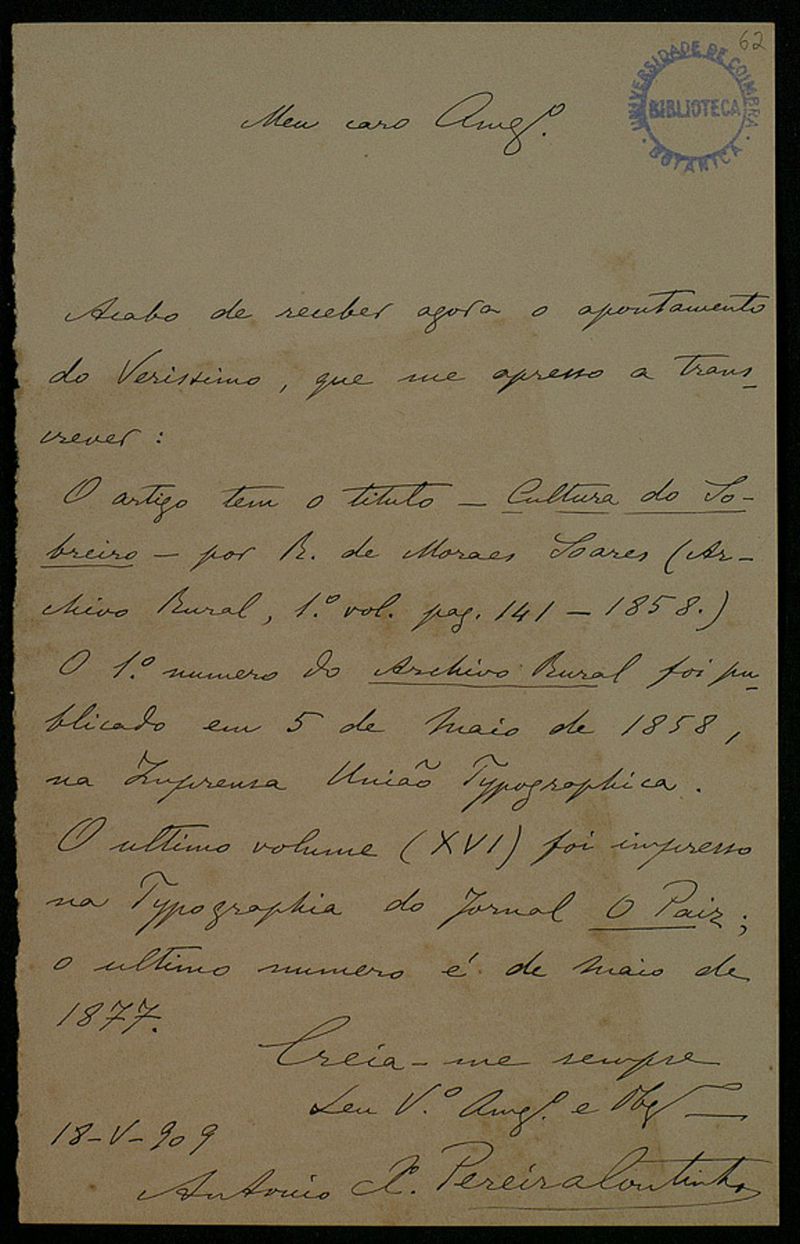 62
UNIVERSIDADE DE COIMBRA
BIBLIOTECA
BOTANICA
Meu caro Amgº.
Acabo de receber agora o apontamento
do Verissimo, que me apresso a trans-
crever:
O artigo tem o titulo — Cultura do So-
breiro — por R. de Moraes Soares (Ar-
chivo Rural, 1.º vol. pag. 141 — 1858.)
O 1.º numero do Archivo Rural foi pu-
blicado em 5 de Maio de 1858,
na Imprensa União Typographica.
O ultimo volume (XVI) foi impresso
na Typographia do Jornal O Paiz;
o ultimo numero é de Maio de
1877.
Creia-me sempre
Seu V.º Amgº. e Obg
18-V-909
Antonio Xº. Pereira Coutinho